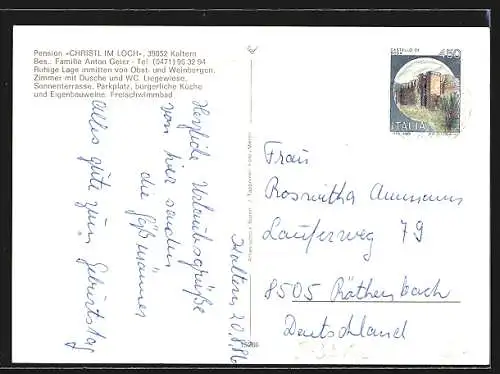 Pension «CHRISTL IM LOCH», 39052 Kaltern
Bes.: Familie Anton Geier - Tel (0471) 96 32 94
Ruhige Lage inmitten von Obst- und Weinbergen.
Zimmer mit Dusche und WC. Liegewiese,
Sonnenterrasse, Parkplatz, bürgerliche Küche
und Eigenbauweine. Freischwimmbad
Kaltern 20.8.86
Herzliche Urlaubsgrüße
von hier senden
die
Alles gute zum Geburtstag
CASTELLO DI
450
ITALIA
Frau
Roswitha Ammann
Lauferweg 79
8505 Röthenbach
Deutschland